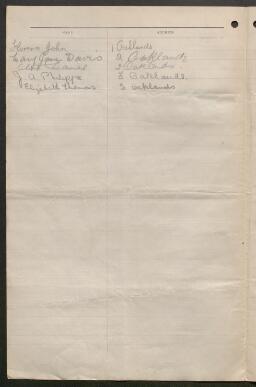 NAME ADDRESS
John 1 Oaklands
Mary Jane Davis 2 Oaklands
Oaklands
J. A. Phipps Oaklands
Elizabeth Thomas 5 oaklands